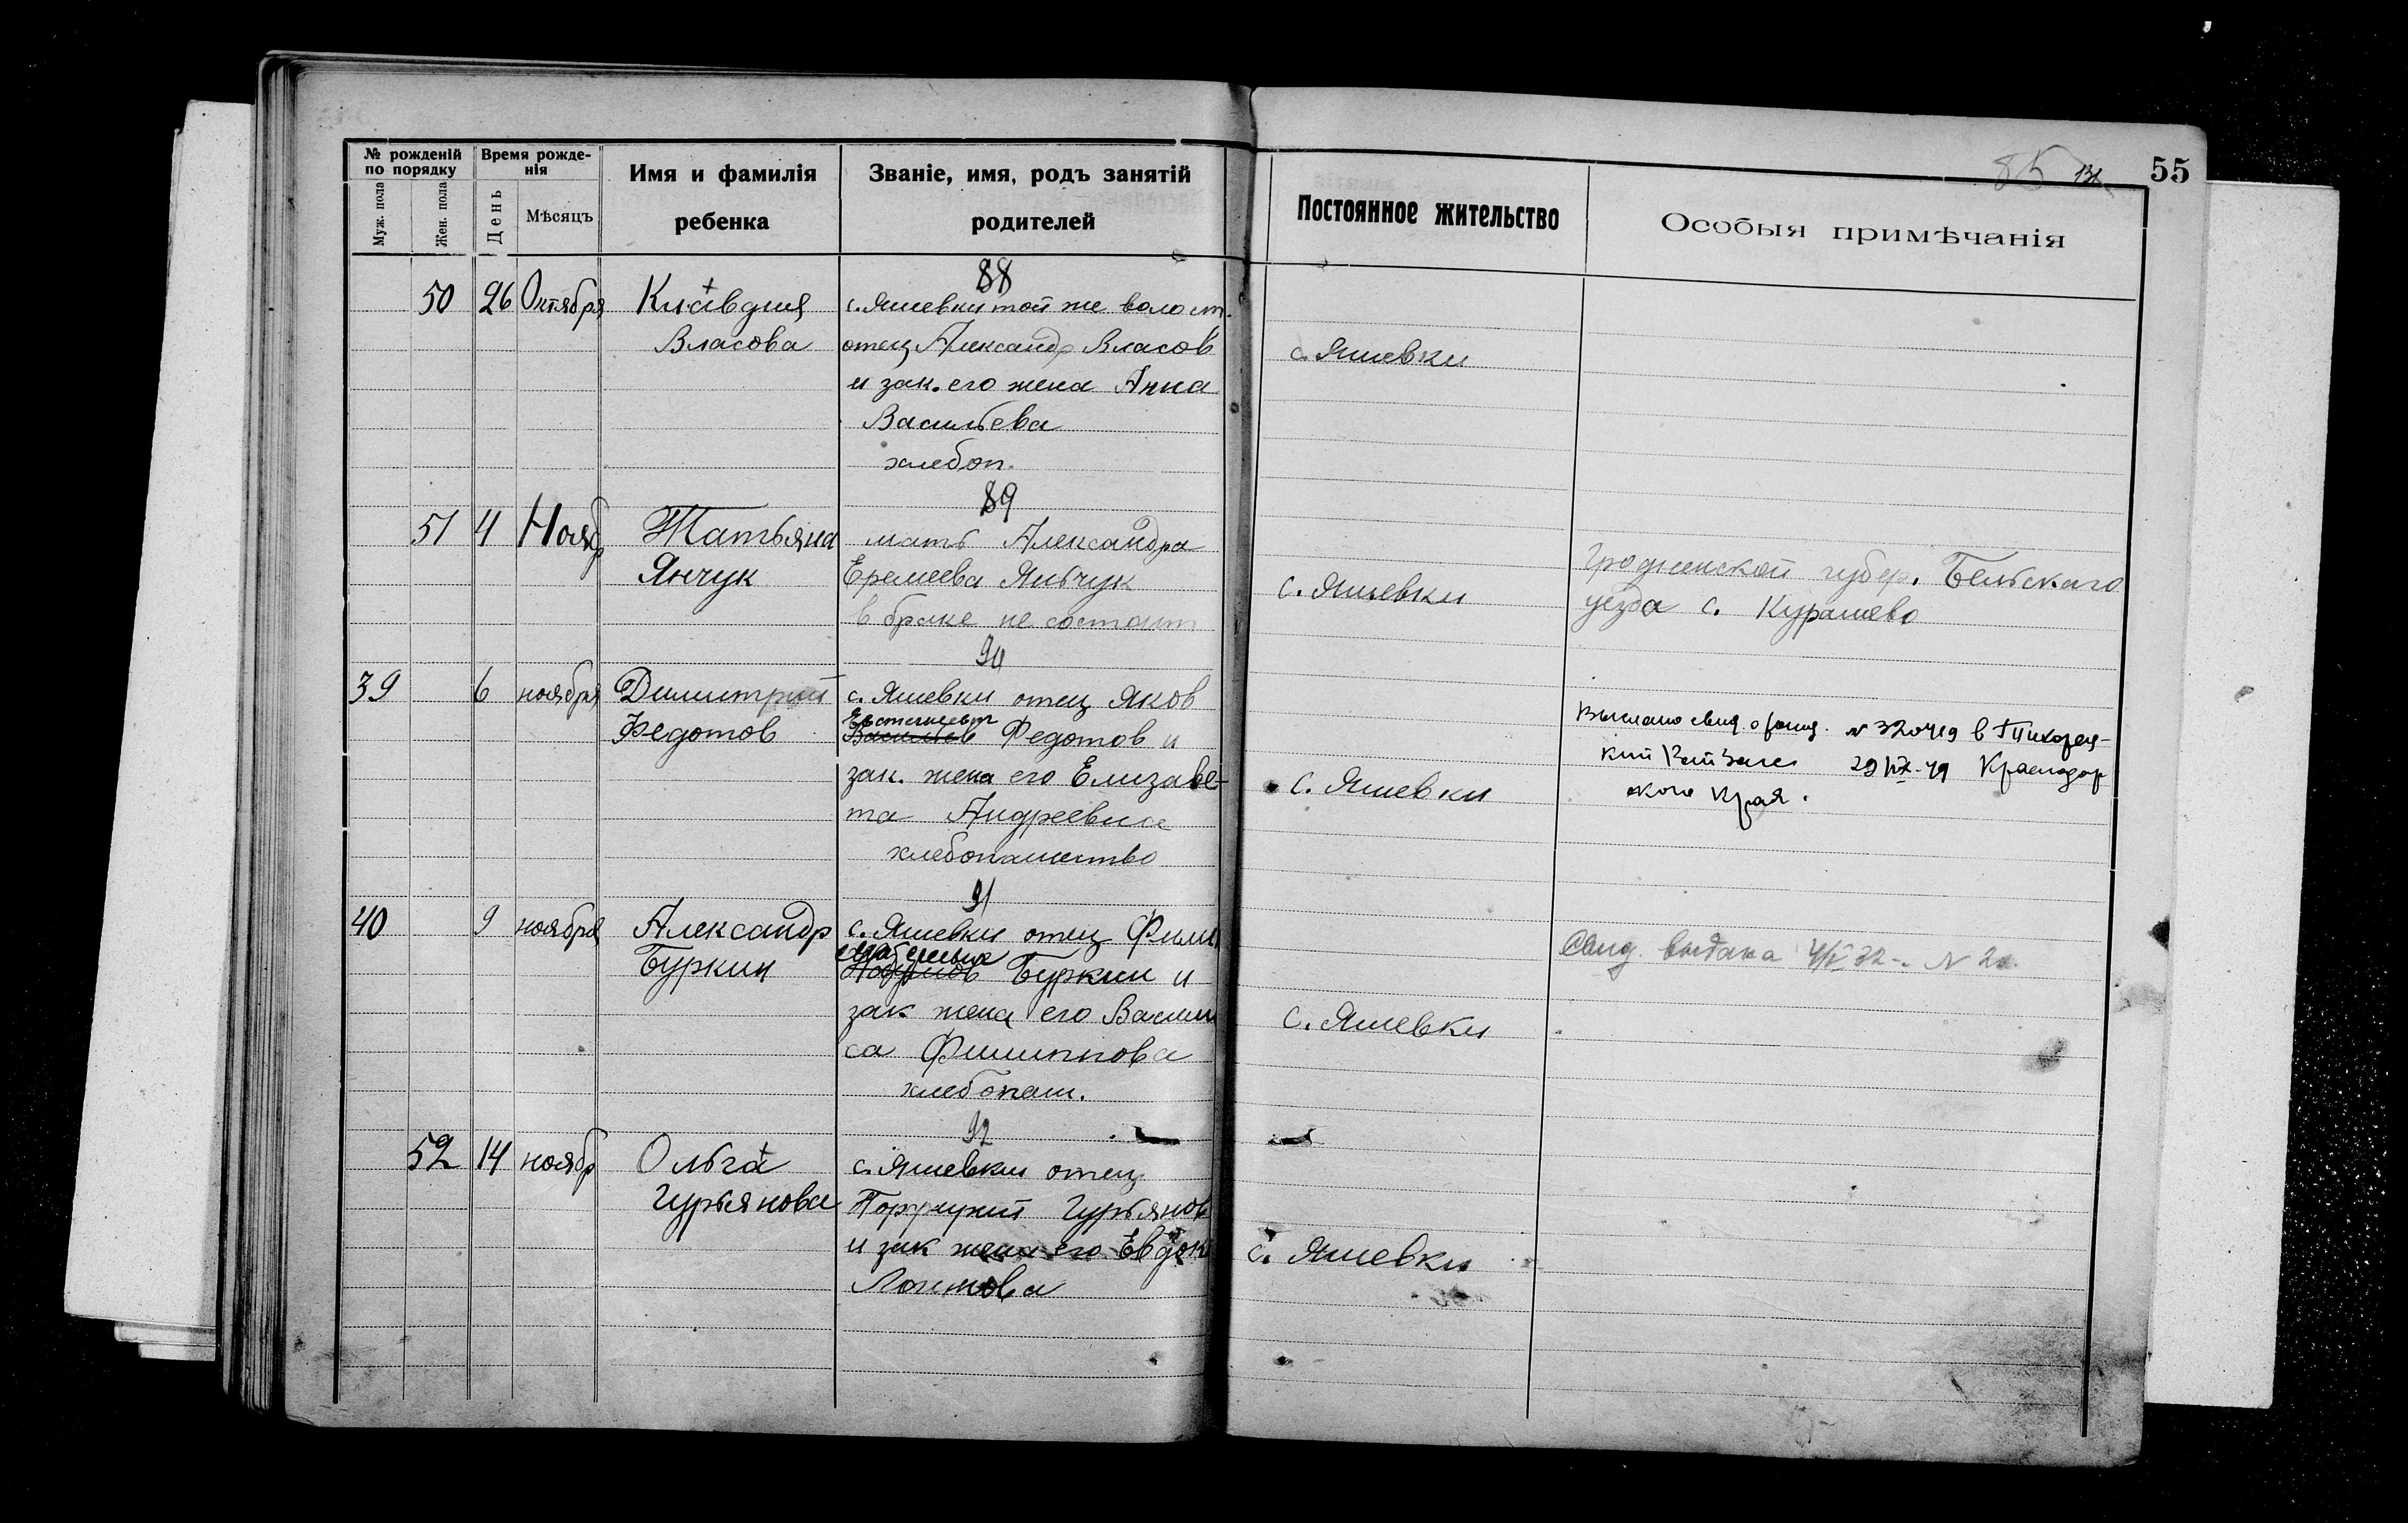 55
85
№ рожденій по порядку
Муж. пола
Жен. пола
Время рожде-
нія
День
Мѣсяцъ
Имя и фамилія
ребенка
Званіе, имя, родъ занятій
родителей
Постоянное жительство
Особыя примѣчанія
88
50 26 Октября Клавдия с. Яшевки той же волост.
Власова отец Александр Власов
с. Яшевки
и зак. его жена Анна
Васильева
хлебоп.
89
51 4 Нояб Татьяна мать Александра
Янчук Еремеева Яньчук
в браке не состоит
с. Яшевки
Гродненской губер. Бельскаго
уезда с. Курашево
90
39 6 ноября Димитрий с. Яшевки отец Яков
Евстегнеевт
Федотов Васильев Федотов и
зак. жена его Елизаве-
та Андреевна
хлебопашество
с. Яшевки
Выслано свид. о рожд. № 320419 в Тихорец-
кий РайЗагс 29/IX-49 Краснодар
ского края.
91
40 9 ноября Александр с. Яшевки отец Фили
Буркин Буркин и
зак жена его Васили
са Филиппова
хлебопаш.
с. Яшевки
Свид. выдана 4/V 32-.
92
52 14 нояб Ольга с. Яшевки отец
Гурьянова Порфирий Гурьянов
и зак жена его Евдок
Логинова
с. Яшевки